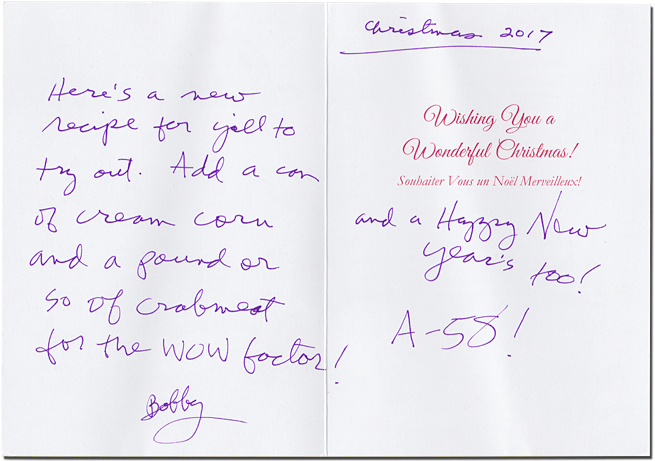 Here's a new
recipe for y'all to
try out. Add a can
of cream corn
and a pound or
so of crabmeat
for the WOW factor!
Bobby
Christmas 2017
Wishing You a
Wonderful Christmas!
Souhaiter Vous un Noël Merveilleux!
and a Happy New
Year's too!
A-58!